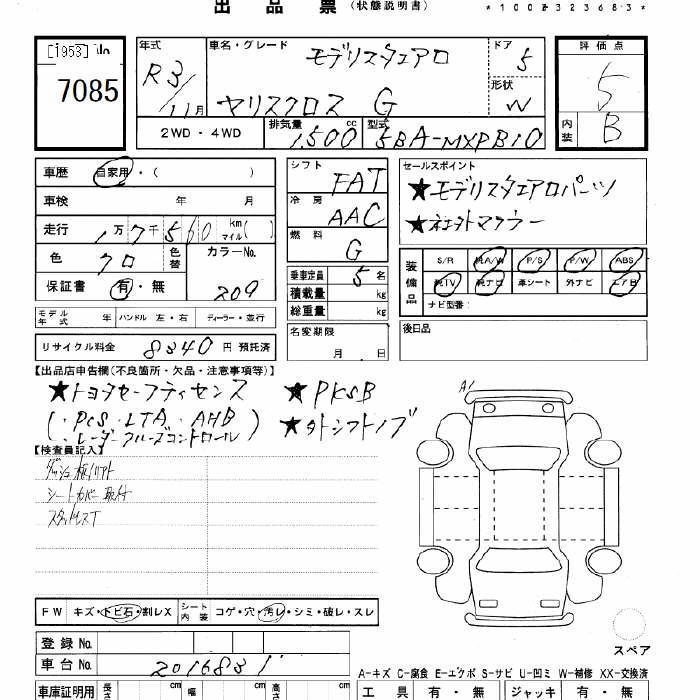 出品票 (状態説明書)
[1953]
7085
年式 R3/11月
車名・グレード モデリスタエアロ
ヤリスクロス G
ドア 5
形状 W
評価点 5
内装 B
2WD・4WD
排気量 1500 cc
型式 5BA-MXPB10
車歴 自家用・( )
車検 年 月
走行 1万7千560 km マイル( )
色 クロ 色替
カラーNo. 209
保証書 有・無
モデル年式 年 ハンドル 左・右 ディーラー・並行
リサイクル料金 8340円 預託済
シフト FAT
冷房 AAC
燃料 G
乗車定員 5名
積載量 kg
総重量 kg
名変期限 月 日
セールスポイント
★モデリスタエアロパーツ
装備品 S/R 純A/W P/S P/W ABS
純TV 純ナビ 革シート 外ナビ エアB
ナビ型番:
後日品
【出品店申告欄(不良箇所・欠品・注意事項等)】
★トヨタセーフティセンス ★PKSB
(・PCS・LTA・AHB
・レーダークルーズコントロール) ★外シフトノブ
【検査員記入】
シートカバー取付
A1
FW キズ・トビ石・割レX シート内装 コゲ・穴・汚レ・シミ・破レ・スレ
登録No.
車台No. 2016831
スペア
A-キズ C-腐食 E-エクボ S-サビ U-凹ミ W-補修 XX-交換済
車庫証明用 長さ cm 幅 cm 高さ cm
工具 有・無 ジャッキ 有・無